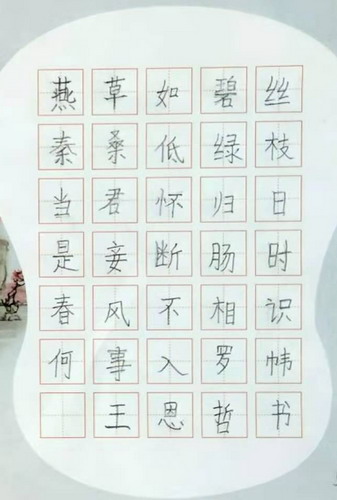 燕草如碧丝
秦桑低绿枝
当君怀归日
是妾断肠时
春风不相识
何事入罗帏
王恩哲书